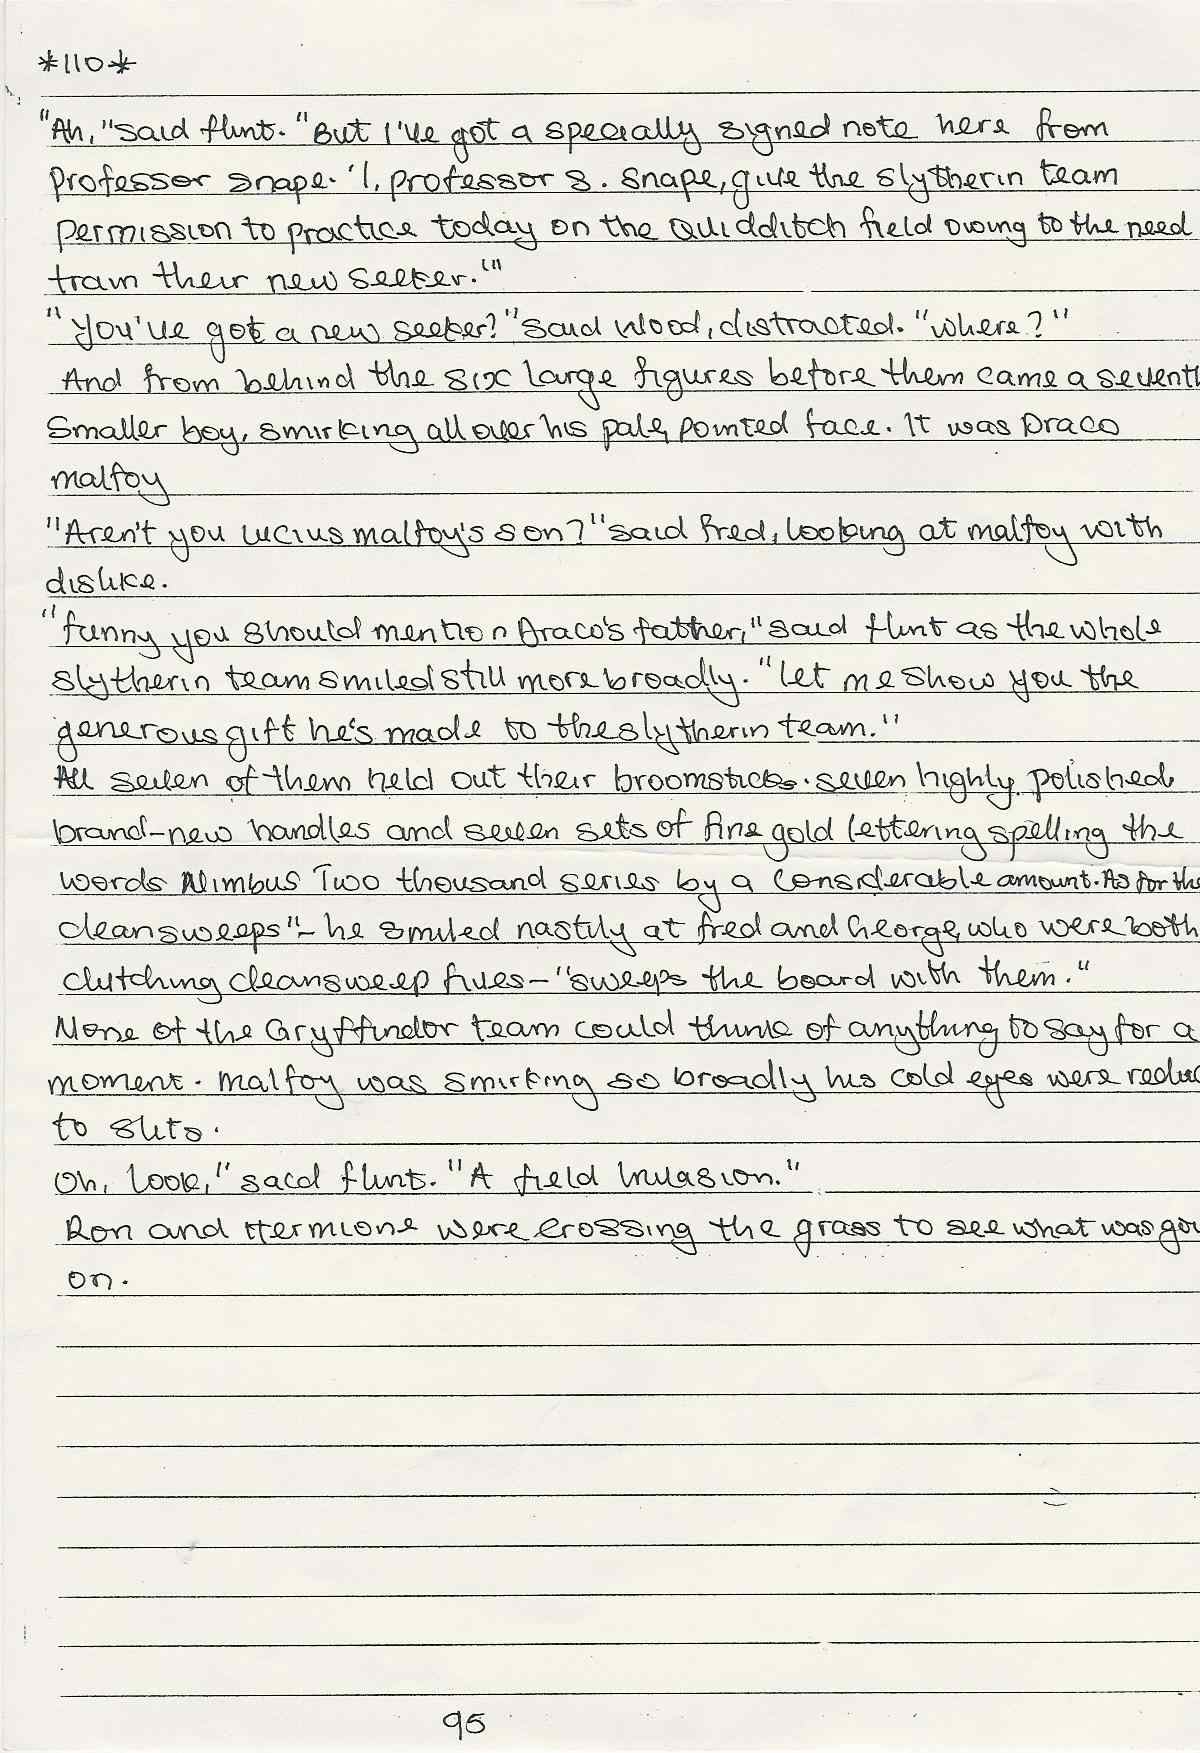 *110*
"Ah," said flint. "But I've got a specially signed note here from
professor snape. 'I, professor s. snape, give the slytherin team
permission to practice today on the Quidditch field owing to the need
train their new seeker.'"
"you've got a new seeker?" said wood, distracted. "where?"
And from behind the six large figures before them came a seventh
smaller boy, smirking all over his pale, pointed face. It was Draco
malfoy
"Aren't you lucius malfoy's son?" said fred, looking at malfoy with
dislike.
"funny you should mention Draco's father," said flint as the whole
slytherin team smiled still more broadly. "let me show you the
generous gift he's made to the slytherin team."
All seven of them held out their broomsticks. seven highly polished
brand-new handles and seven sets of fine gold lettering spelling the
words Nimbus Two thousand series by a considerable amount. As for the
cleansweeps"- he smiled nastily at fred and George, who were both
clutching cleansweep fives- "sweeps the board with them."
None of the Gryffindor team could think of anything to say for a
moment. malfoy was smirking so broadly his cold eyes were reduc
to slits.
Oh, look," said flint. "A field invasion."
Ron and Hermione were crossing the grass to see what was goi
on.
95